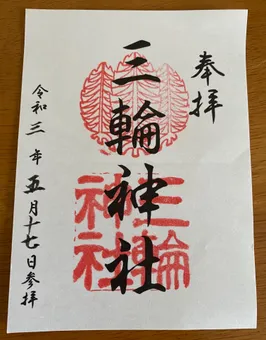 奉拝
三輪神社
三輪
神社
令和三年五月十七日参拝